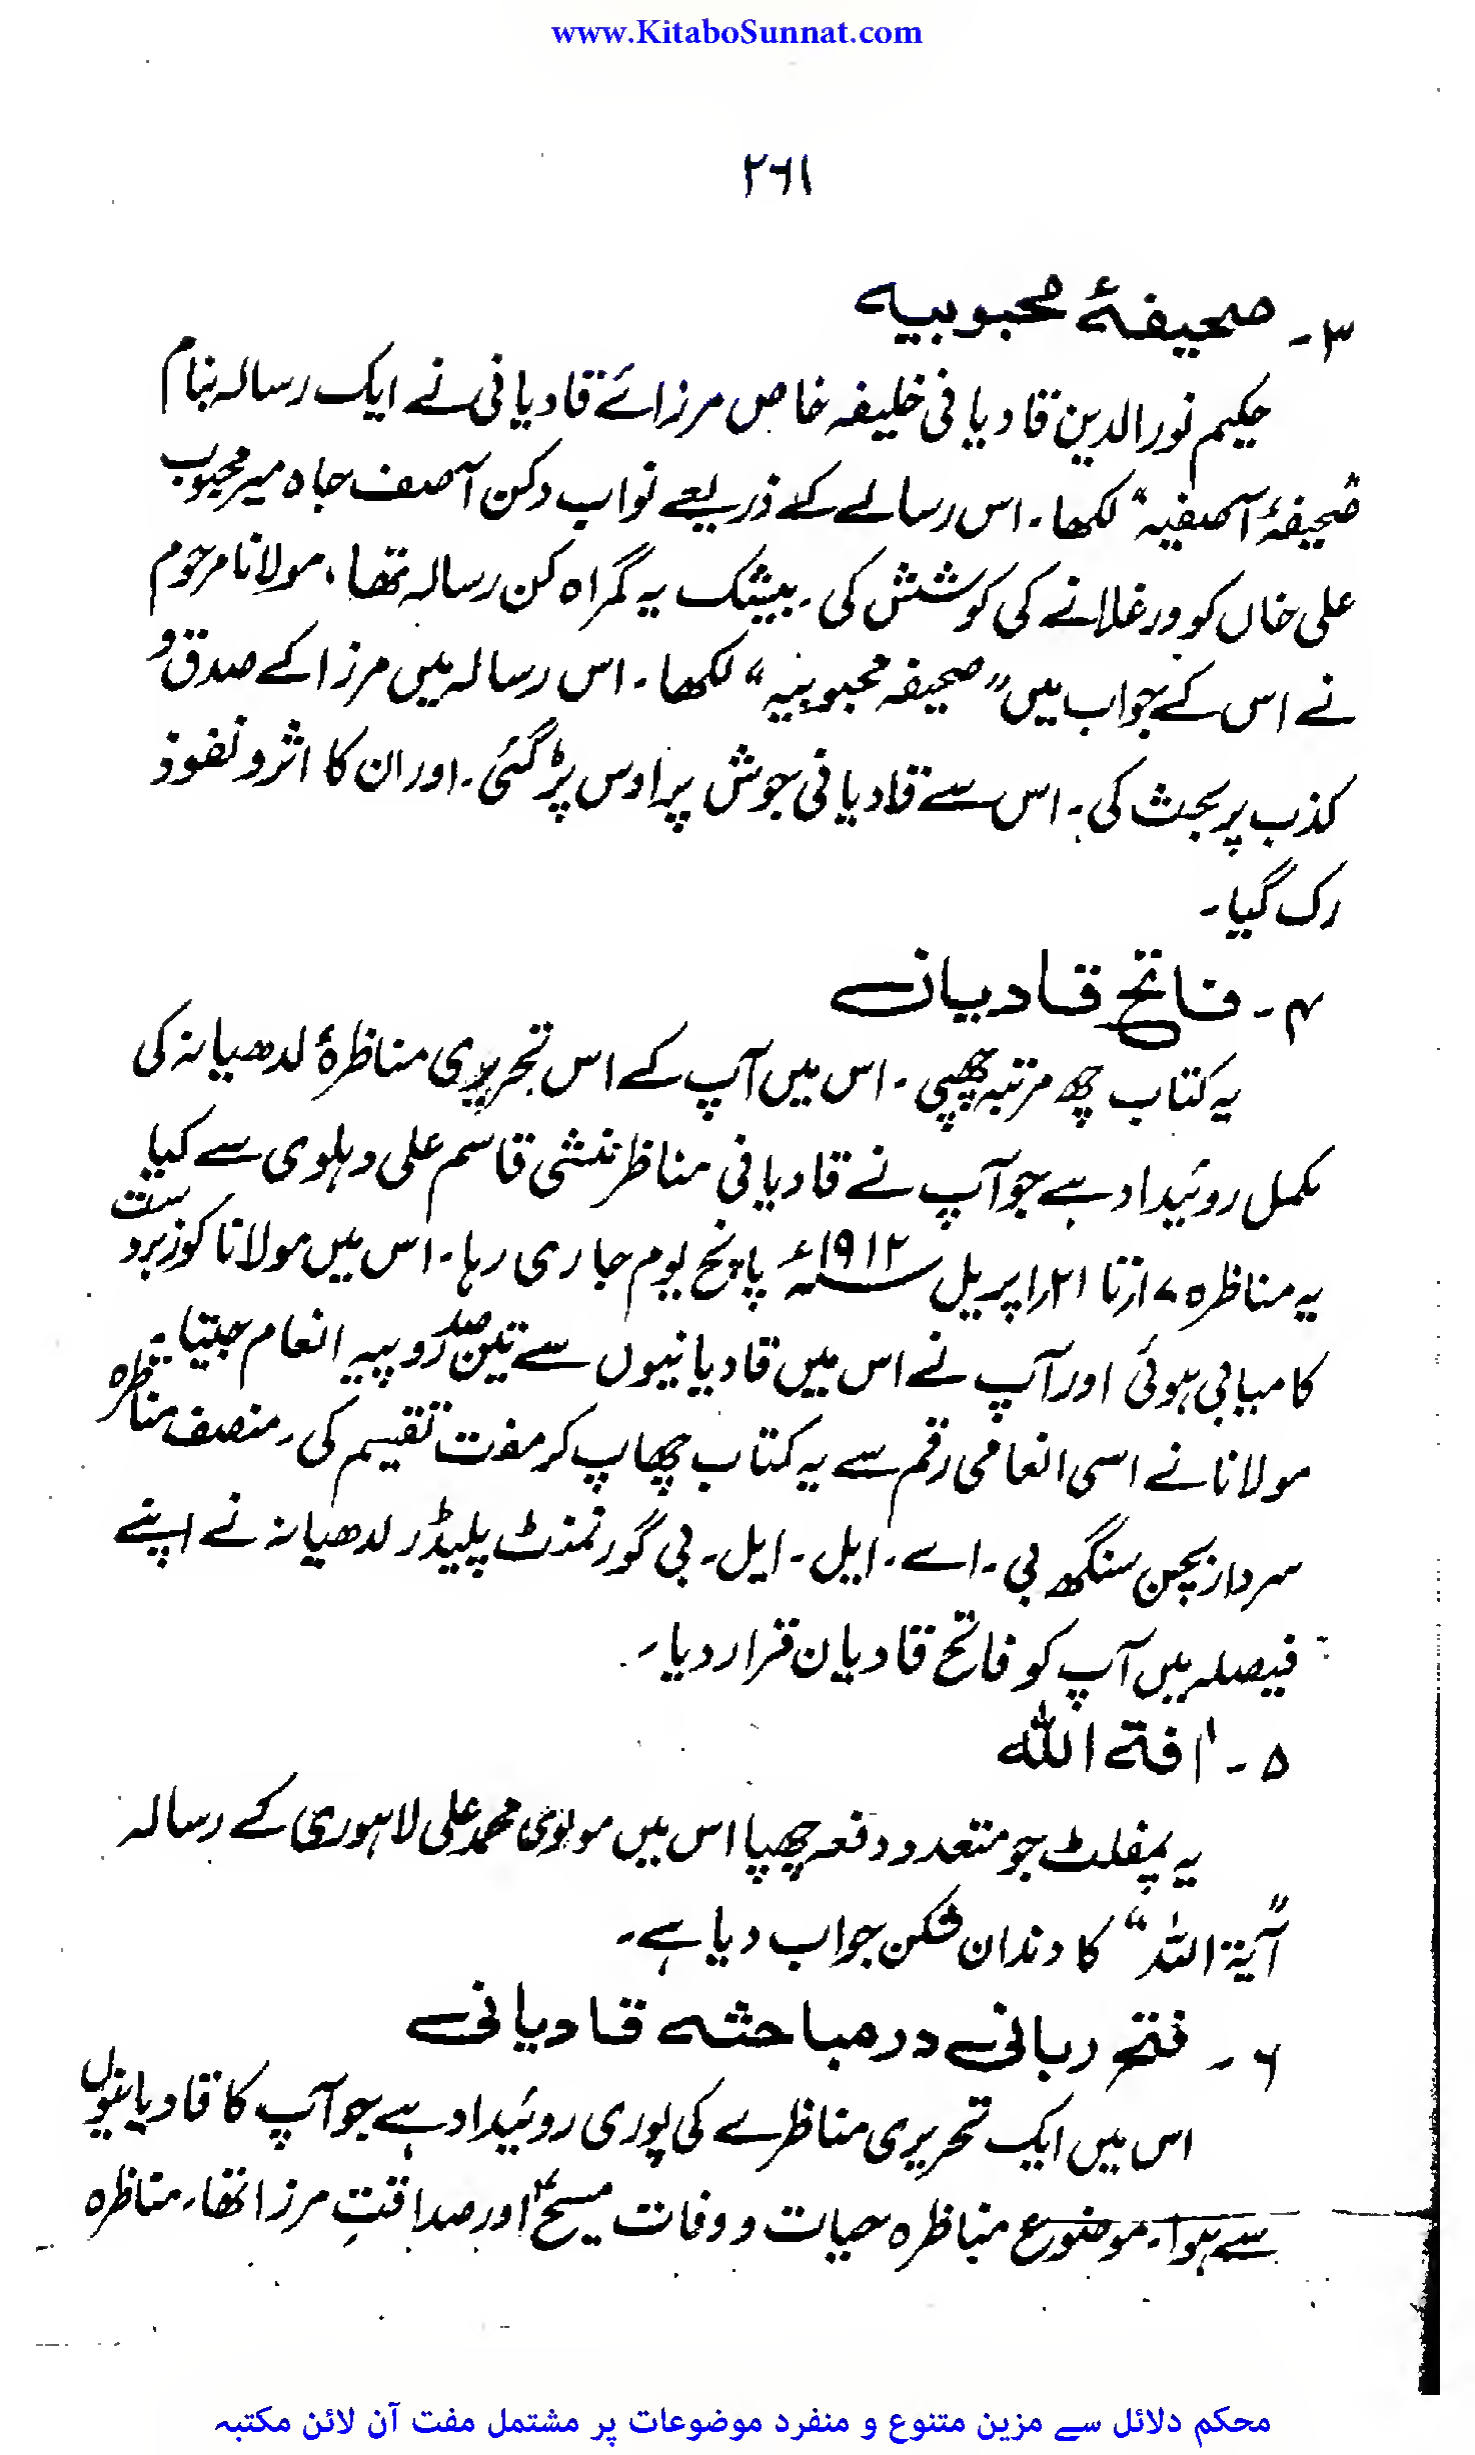 www.KitaboSunnat.com
۲۶۱
۳- صحیفۂ محبوبیہ
حکیم نورالدین قادیانی خلیفہ خاص مرزائے قادیانی نے ایک رسالہ بنام
"صحیفۂ آصفیہ" لکھا۔ اس رسالے کے ذریعے نواب دکن آصف جاہ میر محبوب
علی خاں کو ورغلانے کی کوشش کی۔ بیشک یہ گمراہ کن رسالہ تھا، مولانا مرحوم
نے اس کے جواب میں "صحیفہ محبوبیہ" لکھا۔ اس رسالہ میں مرزا کے صدق و
کذب پر بحث کی۔ اس سے قادیانی جوش پر اوس پڑ گئی۔ اور ان کا اثر و نفوذ
رک گیا۔
۴- فاتح قادیان
یہ کتاب چھ مرتبہ چھپی۔ اس میں آپ کے اس تحریری مناظرۂ لدھیانہ کی
مکمل روئیداد ہے جو آپ نے قادیانی مناظر منشی قاسم علی دہلوی سے کیا
یہ مناظرہ ۷ ار تا ۲۱ر اپریل ۱۹۱۲ء پانچ یوم جاری رہا۔ اس میں مولانا کو زبردست
کامیابی ہوئی اور آپ نے اس میں قادیانیوں سے تین صد روپیہ انعام جیتا۔
مولانا نے اسی انعامی رقم سے یہ کتاب چھاپ کر مفت تقسیم کی۔ منصف مناظرہ
سردار بچن سنگھ بی۔ اے۔ ایل۔ ایل۔ بی گورنمنٹ پلیڈر لدھیانہ نے اپنے
فیصلہ میں آپ کو فاتح قادیان قرار دیا۔
۵- آفۃ اللہ
یہ پمفلٹ جو متعدد دفعہ چھپا اس میں مولوی محمد علی لاہوری کے رسالہ
"آیۃ اللہ" کا دندان شکن جواب دیا ہے۔
۶- فتح ربانی در مباحثہ قادیانی
اس میں ایک تحریری مناظرے کی پوری روئیداد ہے جو آپ کا قادیانیوں
سے ہوا۔ موضوع مناظرہ حیات و وفات مسیحؑ اور صداقتِ مرزا تھا۔ مناظرہ
محکم دلائل سے مزین متنوع و منفرد موضوعات پر مشتمل مفت آن لائن مکتبہ